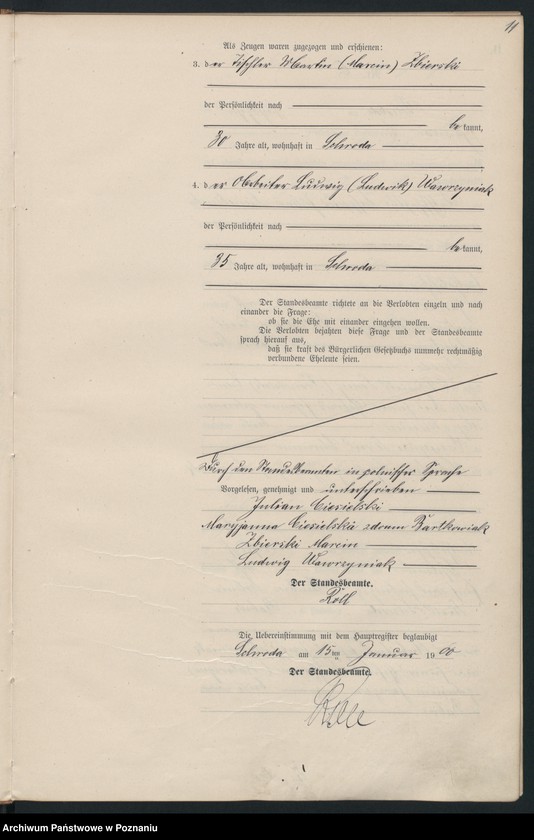 11
Als Zeugen waren zugezogen und erschienen:
3. der Tischler Martin (Marcin) Zbierski
der Persönlichkeit nach
bekannt,
30 Jahre alt, wohnhaft in Schroda
4. der Arbeiter Ludwig (Ludwik) Wawrzyniak
der Persönlichkeit nach
bekannt,
35 Jahre alt, wohnhaft in Schroda
Der Standesbeamte richtete an die Verlobten einzeln und nach
einander die Frage:
ob sie die Ehe mit einander eingehen wollen.
Die Verlobten bejahten diese Frage und der Standesbeamte
sprach hierauf aus,
daß sie kraft des Bürgerlichen Gesetzbuchs nunmehr rechtmäßig
verbundene Eheleute seien.
Durch den Standesbeamten in polnischer Sprache
Vorgelesen, genehmigt und unterschrieben
Julian Ciesielski
Maryjanna Ciesielska zdoum Bartkowiak
Zbierski Marcin
Ludwig Wawrzyniak
Der Standesbeamte.
Roll
Die Uebereinstimmung mit dem Hauptregister beglaubigt
Schroda am 15ten Januar 1900
Der Standesbeamte.
Roll
Archiwum Państwowe w Poznaniu